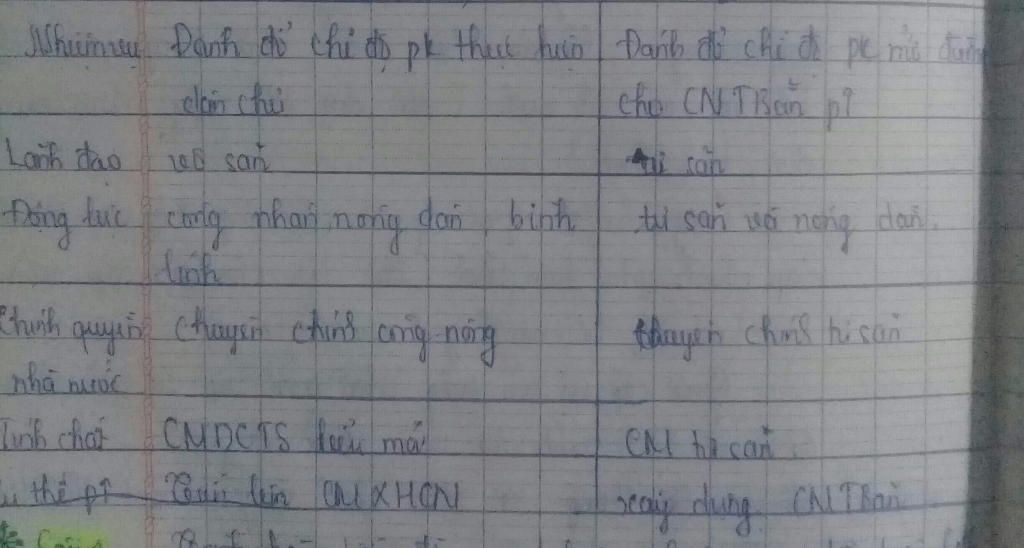 Nhiệm vụ Đánh đổ chế độ pk thực hiện Đánh đổ chế độ pk mở đường
dân chủ cho CNTBản p?
Lãnh đạo vô sản tư sản
Động lực công nhân, nông dân, binh tư sản và nông dân.
lính
Chính quyền chuyên chính công nông chuyên chính tư sản
nhà nước
Tính chất CMDCTS kiểu mới CM tư sản
thế p? lên CMXHCN xây dựng CNTBản